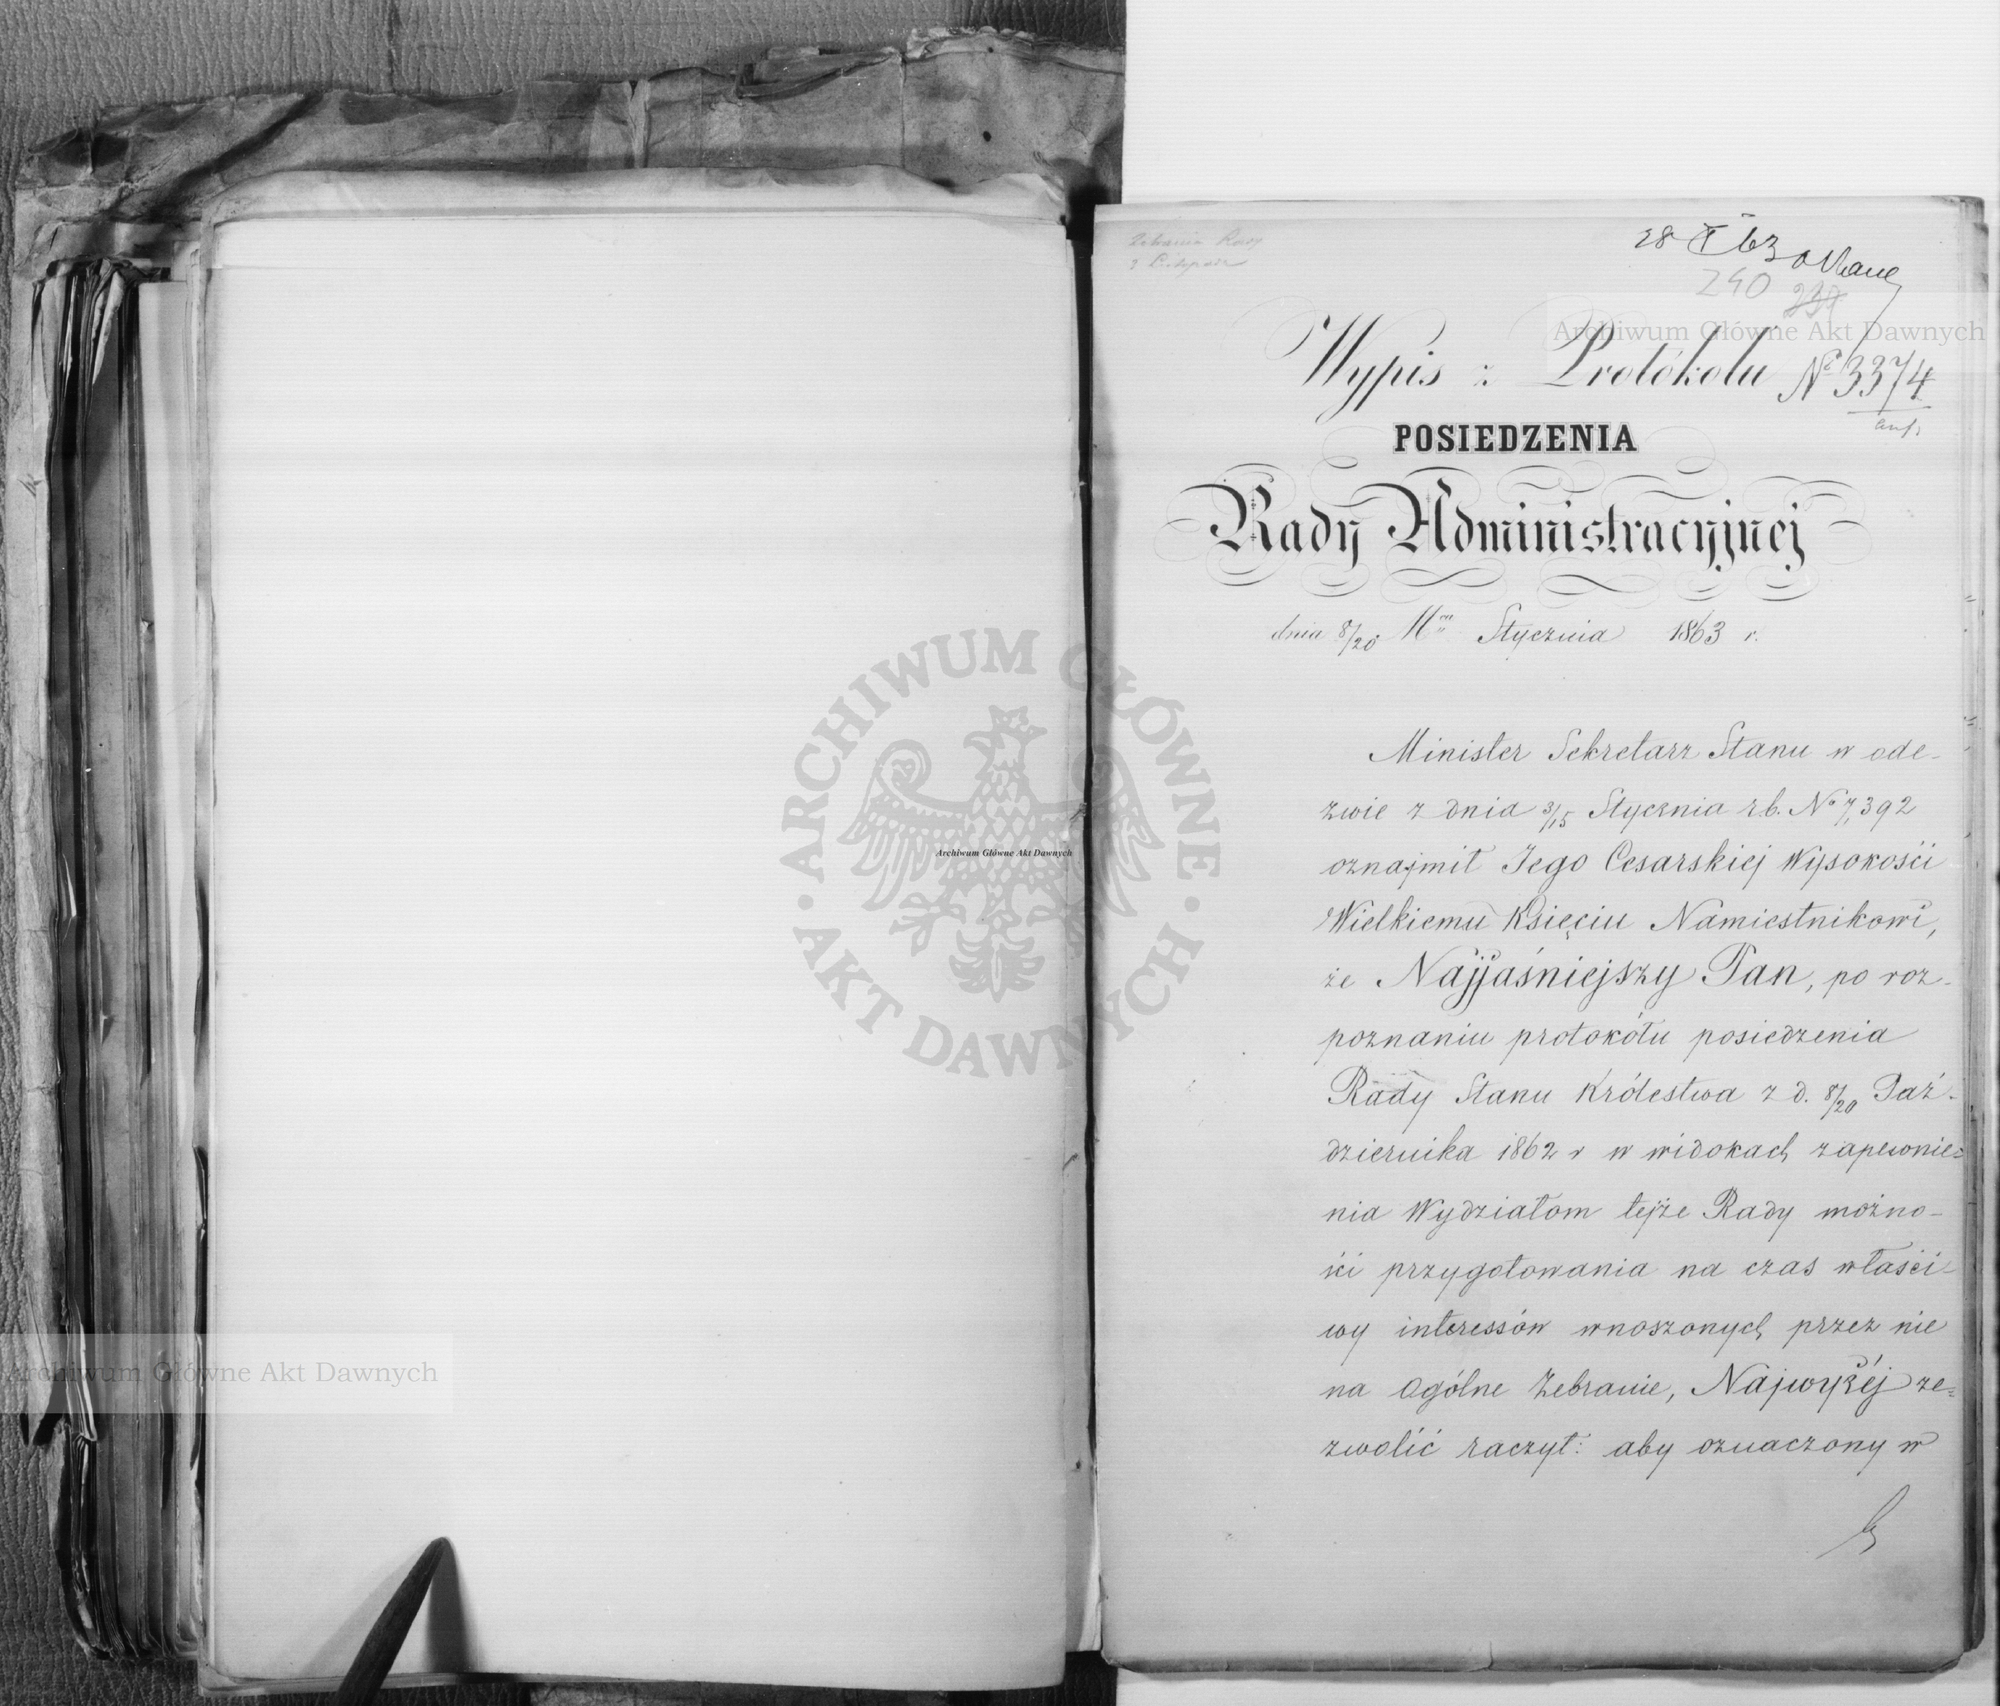 28 I 63
240 239
Wypis z Protokołu No 3374
POSIEDZENIA
Rady Administracyjnej
dnia 8/20 Mca Stycznia 1863 r.
Minister Sekretarz Stanu w ode-
zwie z dnia 3/15 Stycznia r.b. No 7,392
oznajmił Jego Cesarskiej Wysokości
Wielkiemu Księciu Namiestnikowi,
że Najjaśniejszy Pan, po roz-
poznaniu protokółu posiedzenia
Rady Stanu Królestwa z d. 8/20 Paź-
dziernika 1862 r w widokach zapewnie=
nia Wydziałom tejże Rady możno-
ści przygotowania na czas właści-
wy interessów wnoszonych przez nie
na Ogólne Zebranie, Najwyżéj ze=
zwolić raczył: aby oznaczony w
Archiwum Główne Akt Dawnych
ARCHIWUM GŁÓWNE AKT DAWNYCH
Archiwum Główne Akt Dawnych
Archiwum Główne Akt Dawnych